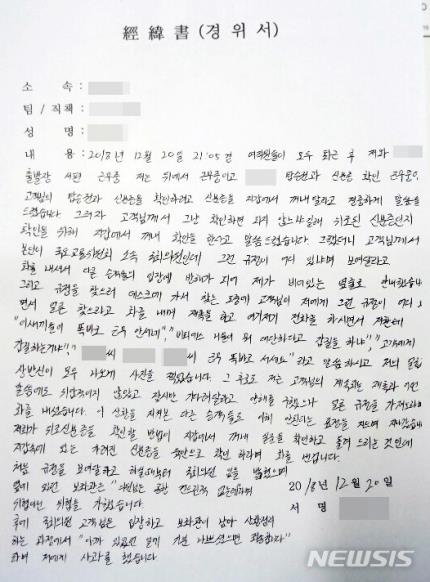 經緯書(경위서)
소 속 :
팀 / 직책 :
성 명 :
내 용 : 2018년 12월 20일 21:05경 여객들이 모두 탑승 후 제가
출발장 근무중 저는 뒤에서 근무중이고 탑승권과 신분증 확인 근무중
고객님의 탑승권과 신분증을 확인하려고 신분증을 지갑에서 꺼내달라고 정중하게 말씀을
드렸습니다. 그러자 고객님께서 그냥 확인하면 되지 않느냐길래 위조된 신분증인지
확인을 위해 지갑에서 꺼내 확인을 한다고 말씀드렸습니다. 그랬더니 고객님께서
본인이 국토교통위원회 소속 국회의원인데 그런 규정이 어디 있냐며 보여달라고
화를 내셔서 다른 승객들의 입장에 방해가 되어 제가 비어있는 옆쪽으로 안내했습니다
그리고 규정을 찾으러 데스크에 가서 찾는 도중에 고객님이 저에게 그런 규정이 어디
면서 얼른 찾으라고 화를 내며 재촉을 하고 여기저기 전화를 하시면서 저한테
"이새끼들이 똑바로 근무 안서네", 뭐 대단하다고 갑질을 하냐", "고객에게
갑질하는거냐", " 씨 씨 근무 똑바로 서세요" 라고 말씀하시고 저의 얼굴
상반신이 모두 나오게 사진을 찍었습니다. 그 후로도 저는 고객님의 계속되는 재촉과
말씀에도 위압적이지 않았고 잠시만 기다려달라고 양해를 구했으나 얼른 규정을 가져오라며
화를 내셨습니다. 이 상황을 지켜본 다른 승객들도
제차가 위조신분증을 확인할 방법이 지갑에서 꺼내 앞뒤를 확인하고 돌려 드리는 것인데
지갑속에 있는 가려진 신분증을 육안으로 확인 하라며 화를 냅니다.
처음 규정을 보여달라고 하실때부터 국회의원 임을 밝혔으며
옆에 있던 보좌관은
2018년 12월 20일
위협아닌 위협을 가하였습니다.
서 명
후에 국회의원 고객님은 입장하고 보좌관이 남아
하는 과정에서 "아까 있었던 일이 기분 나쁘셨으면 죄송하다"
하며 저에게 사과를 했습니다
NEWSIS